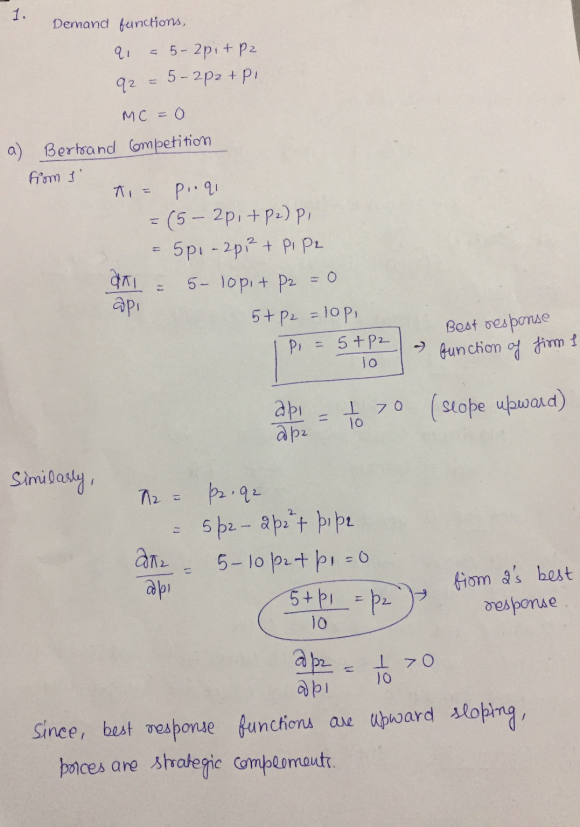 1.
Demand functions,
q1 = 5 - 2p1 + p2
q2 = 5 - 2p2 + p1
MC = 0
a) Bertrand Competition
Firm 1
π1 = p1.q1
= (5 - 2p1 + p2) p1
= 5p1 - 2p1² + p1p2
∂π1/∂p1 = 5 - 10p1 + p2 = 0
5 + p2 = 10p1
p1 = (5 + p2)/10 → Best response function of firm 1
∂p1/∂p2 = 1/10 > 0 (slope upward)
Similarly,
π2 = p2.q2
= 5p2 - 2p2² + p1p2
∂π2/∂p1 = 5 - 10p2 + p1 = 0
(5 + p1)/10 = p2 → firm 2's best response.
∂p2/∂p1 = 1/10 > 0
Since, best response functions are upward sloping,
prices are strategic complements.